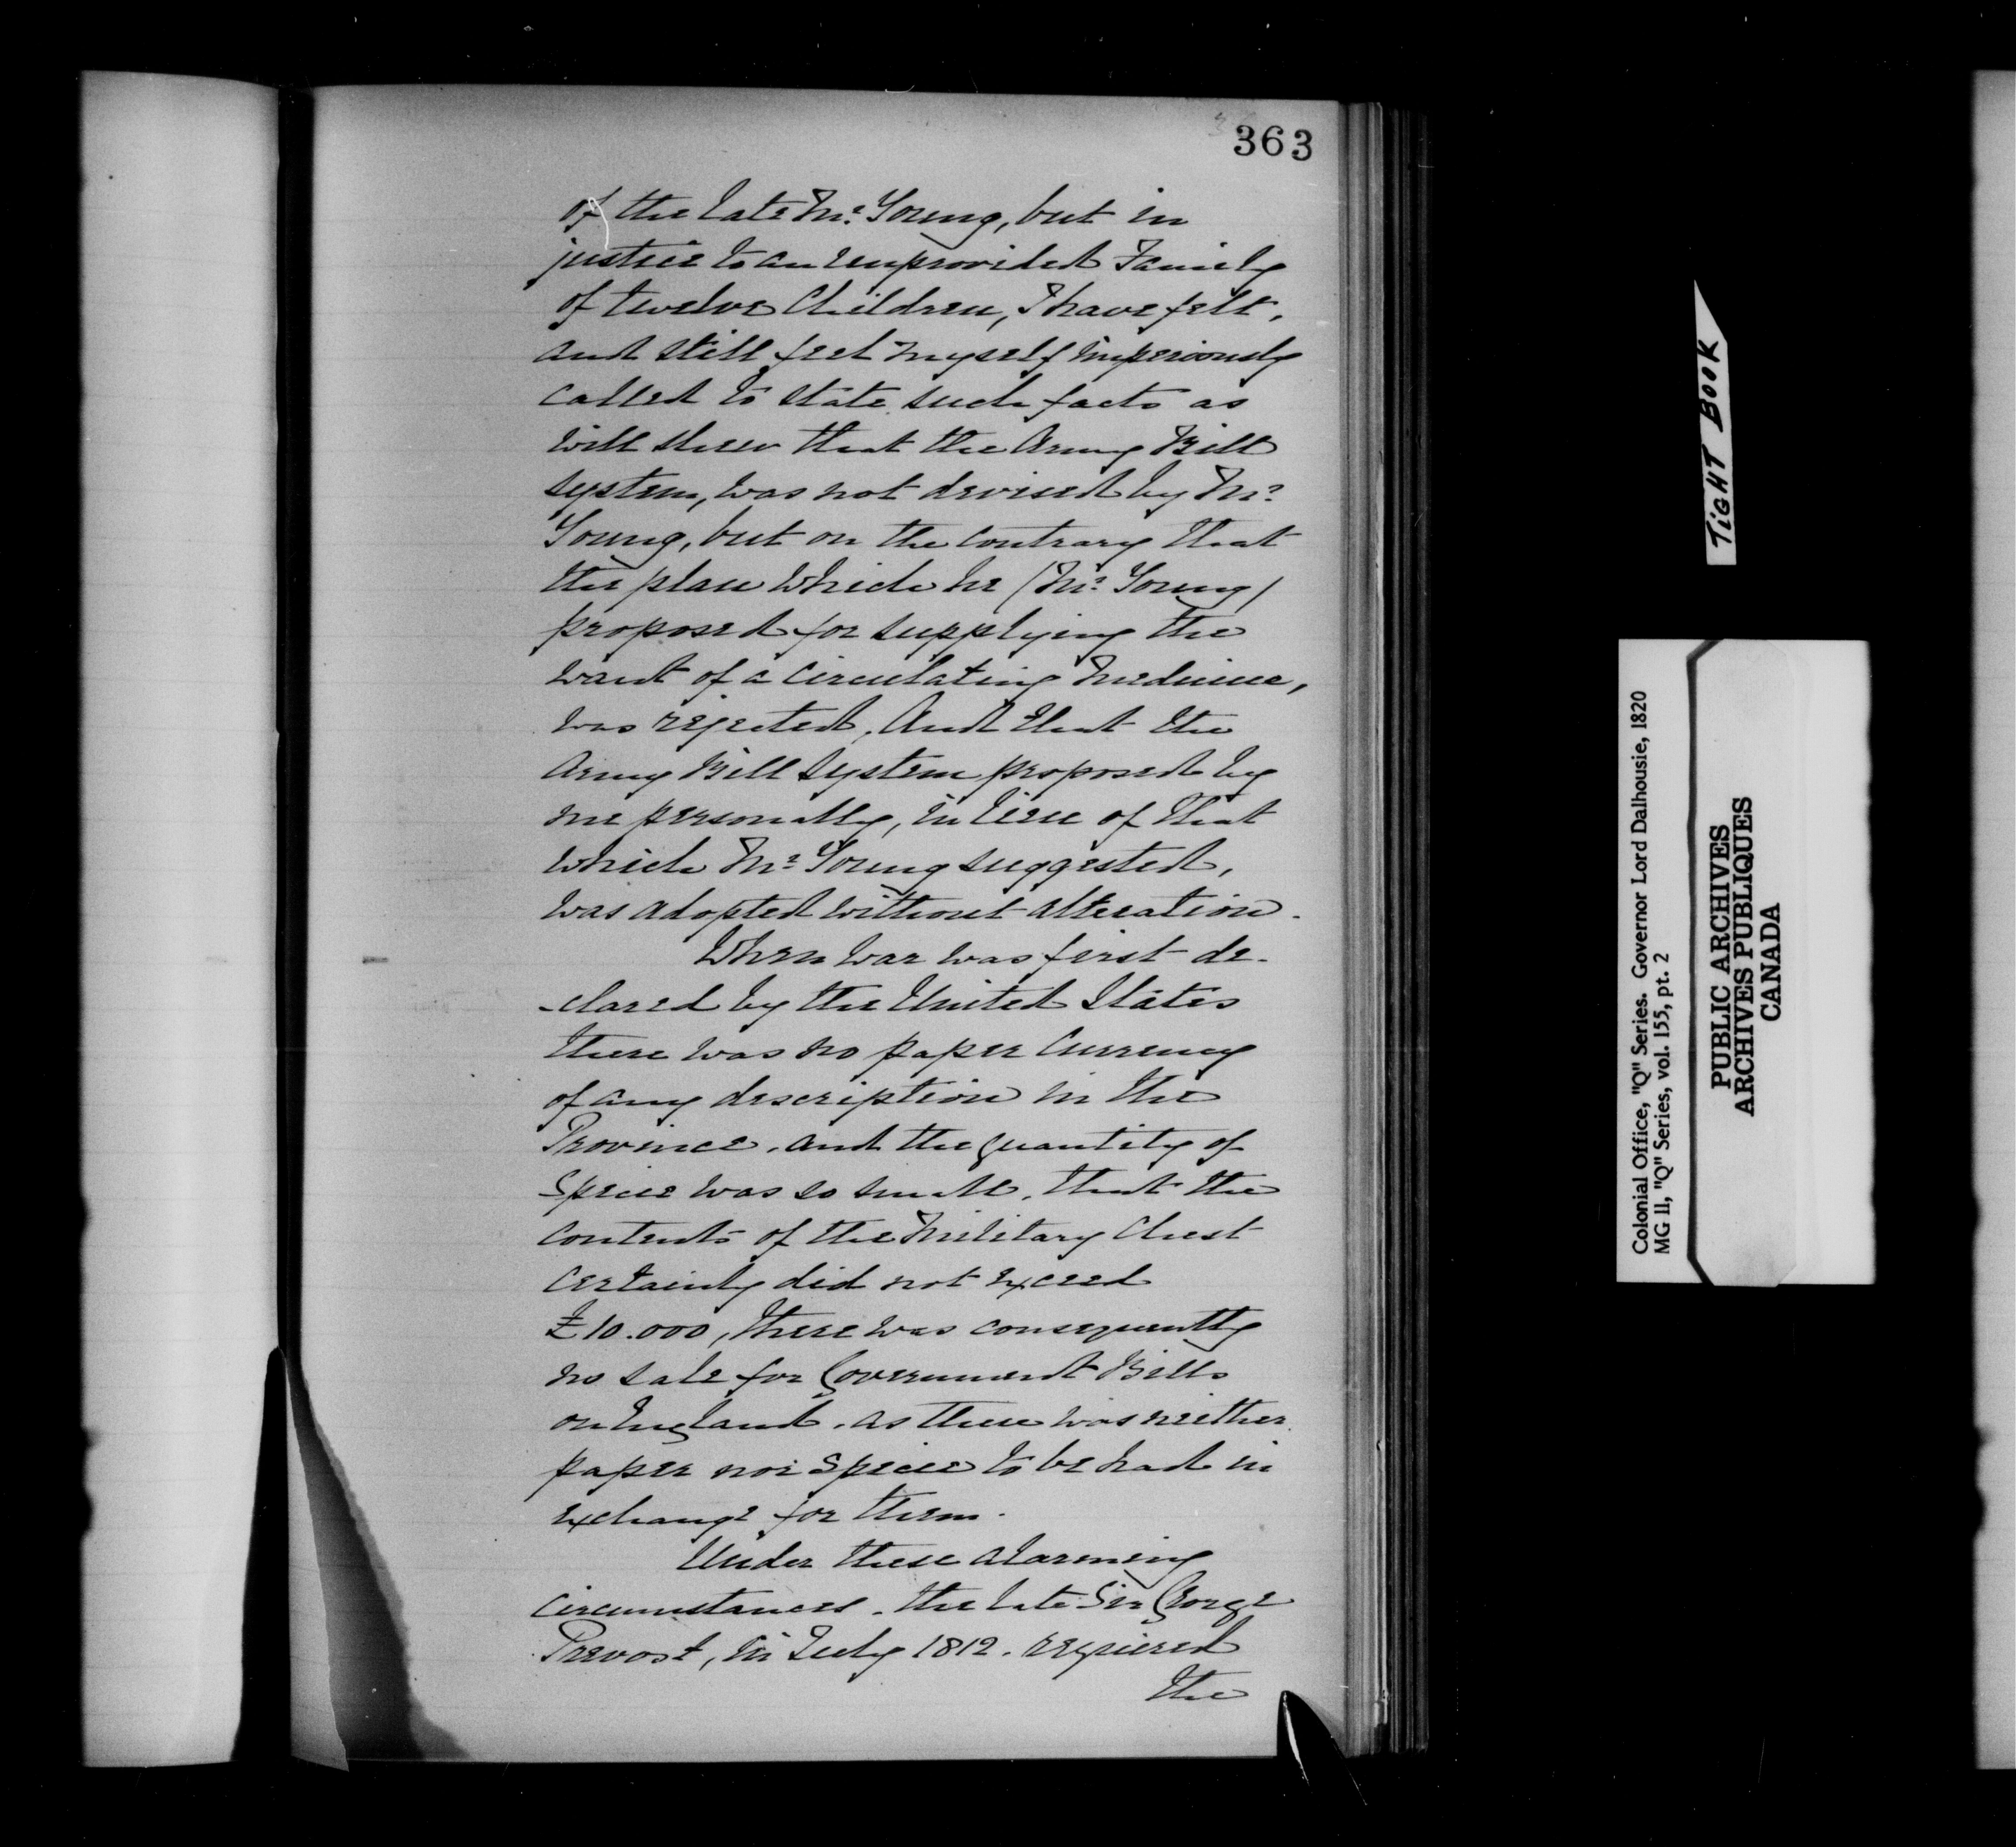 363
of the late Mr. Young, but in
justice to an unprovided Family
of twelve Children, I have felt,
and still feel myself imperiously
called to state such facts as
will shew that the Army Bill
system, was not devised by Mr.
Young, but on the contrary that
the plan which he (Mr. Young)
proposed for supplying the
want of a circulating medium,
was rejected, And that the
Army Bill System proposed by
me personally, in lieu of that
which Mr. Young suggested,
was adopted without alteration.
When War was first de-
-clared by the United States
there was no paper Currency
of any description in the
Province, and the quantity of
Specie was so small, that the
contents of the Military Chest
certainly did not exceed
£10.000, there was consequently
no sale for Government Bills
on England, as there was neither
paper nor Specie to be had in
exchange for them.
Under these alarming
circumstances, the late Sir George
Prevost, in July 1812, required
the
TIGHT BOOK
Colonial Office, "Q" Series. Governor Lord Dalhousie, 1820
MG 11, "Q" Series, vol. 155, pt. 2
PUBLIC ARCHIVES
ARCHIVES PUBLIQUES
CANADA